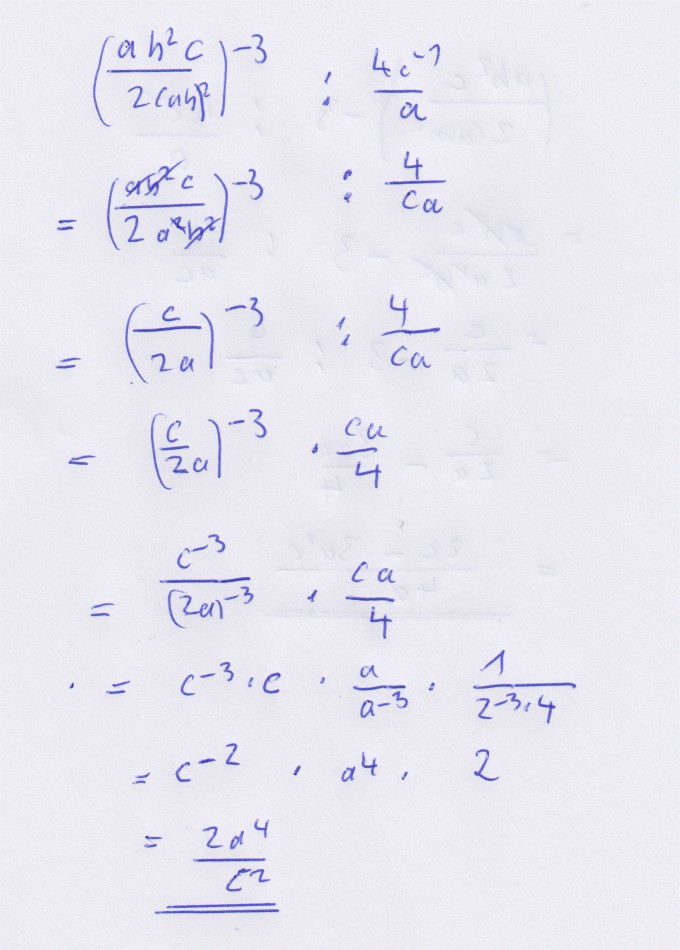 (ab²c / 2(ab)²)⁻³ : 4c⁻¹ / a
= (ab²c / 2a²b²)⁻³ : 4 / ca
= (c / 2a)⁻³ : 4 / ca
= (c / 2a)⁻³ · ca / 4
= c⁻³ / (2a)⁻³ · ca / 4
· = c⁻³ · c · a / a⁻³ · 1 / 2⁻³·4
= c⁻² · a⁴ · 2
= 2a⁴ / c²